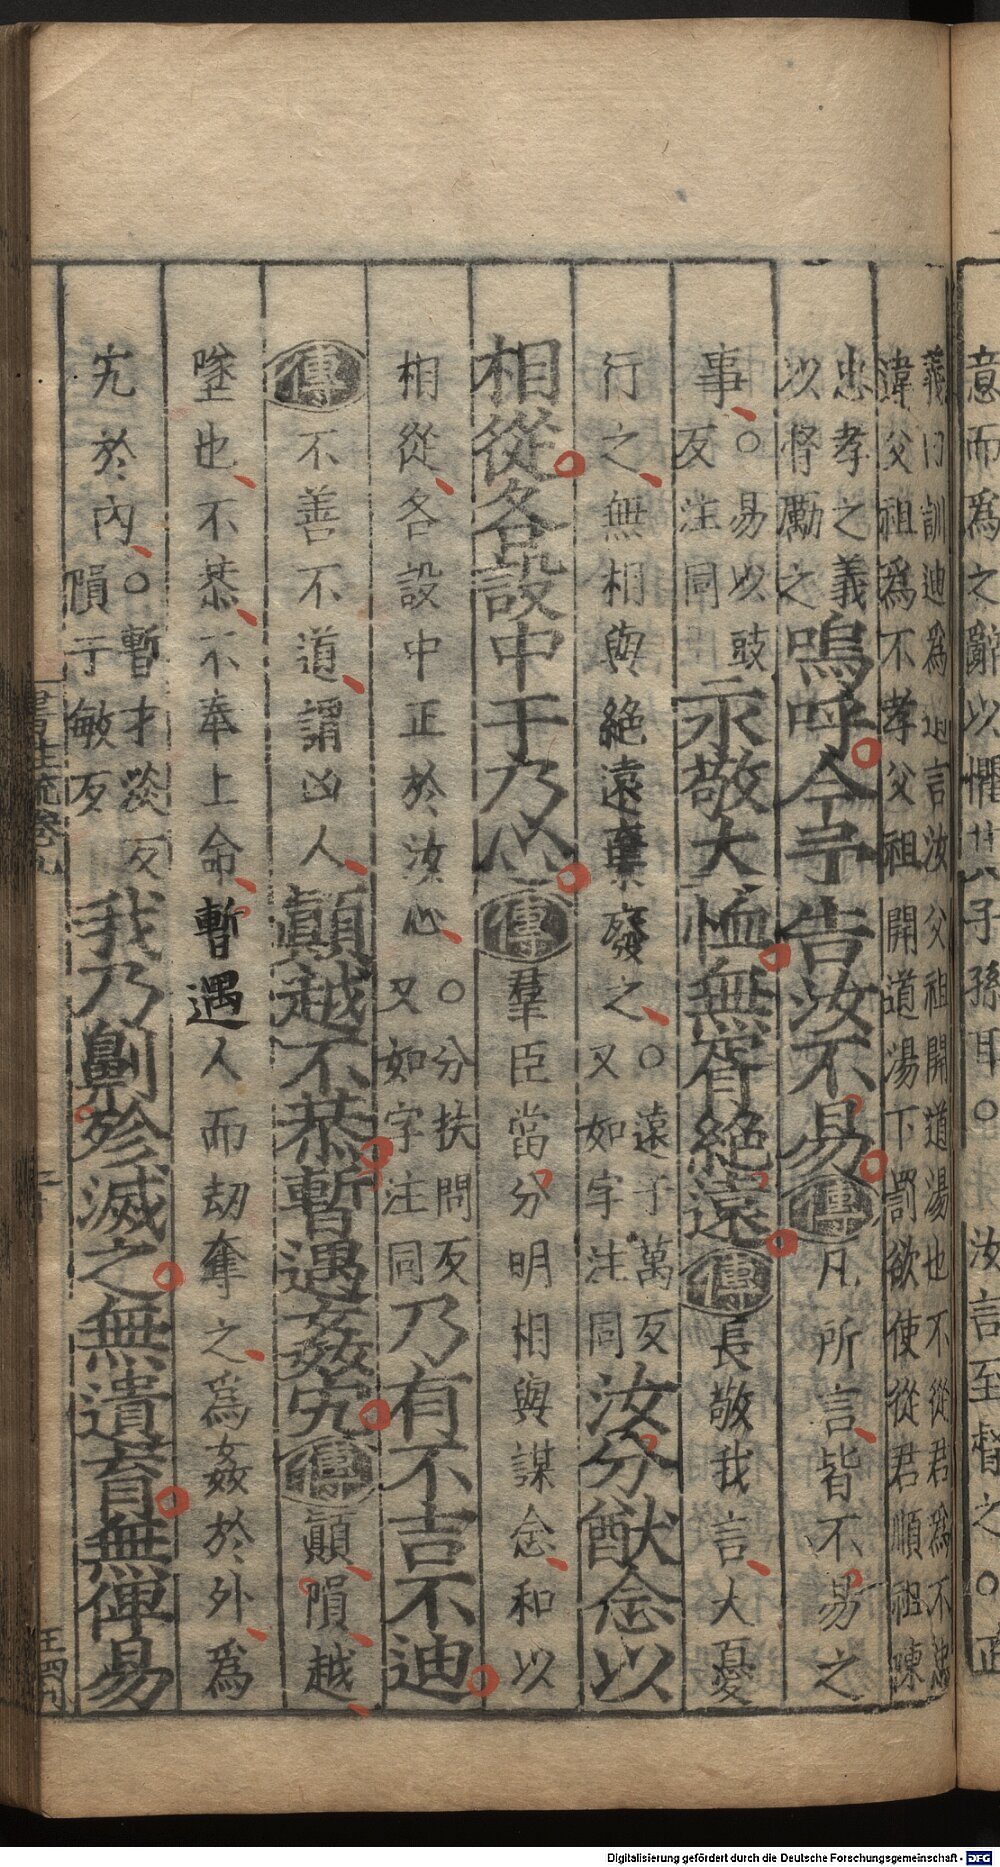 意而爲之辭以懼其子孫耳○汝言至督之○正
義曰訓迪爲道言汝父祖開道湯也不從君爲不忠
違父祖爲不孝父祖開道湯下罰欲使從君順祖陳
忠孝之義
以督勵之
嗚呼今予告汝不易傳凡所言皆不易之
事○易以豉
反注同
永敬大恤無胥絕遠傳長敬我言大憂
行之無相與絕遠棄廢之○遠于萬反
又如字注同
汝分猷念以
相從各設中于乃心傳羣臣當分明相與謀念和以
相從各設中正於汝心○分扶問反
又如字注同
乃有不吉不迪
傳不善不道謂凶人顚越不恭暫遇姦宄傳顚隕越
墜也不恭不奉上命暫遇人而劫奪之爲姦於外爲
宄於內○暫才淡反
隕于敏反
我乃劓殄滅之無遺育無俾易
書注疏卷九
Digitalisierung gefördert durch die Deutsche Forschungsgemeinschaft - DFG